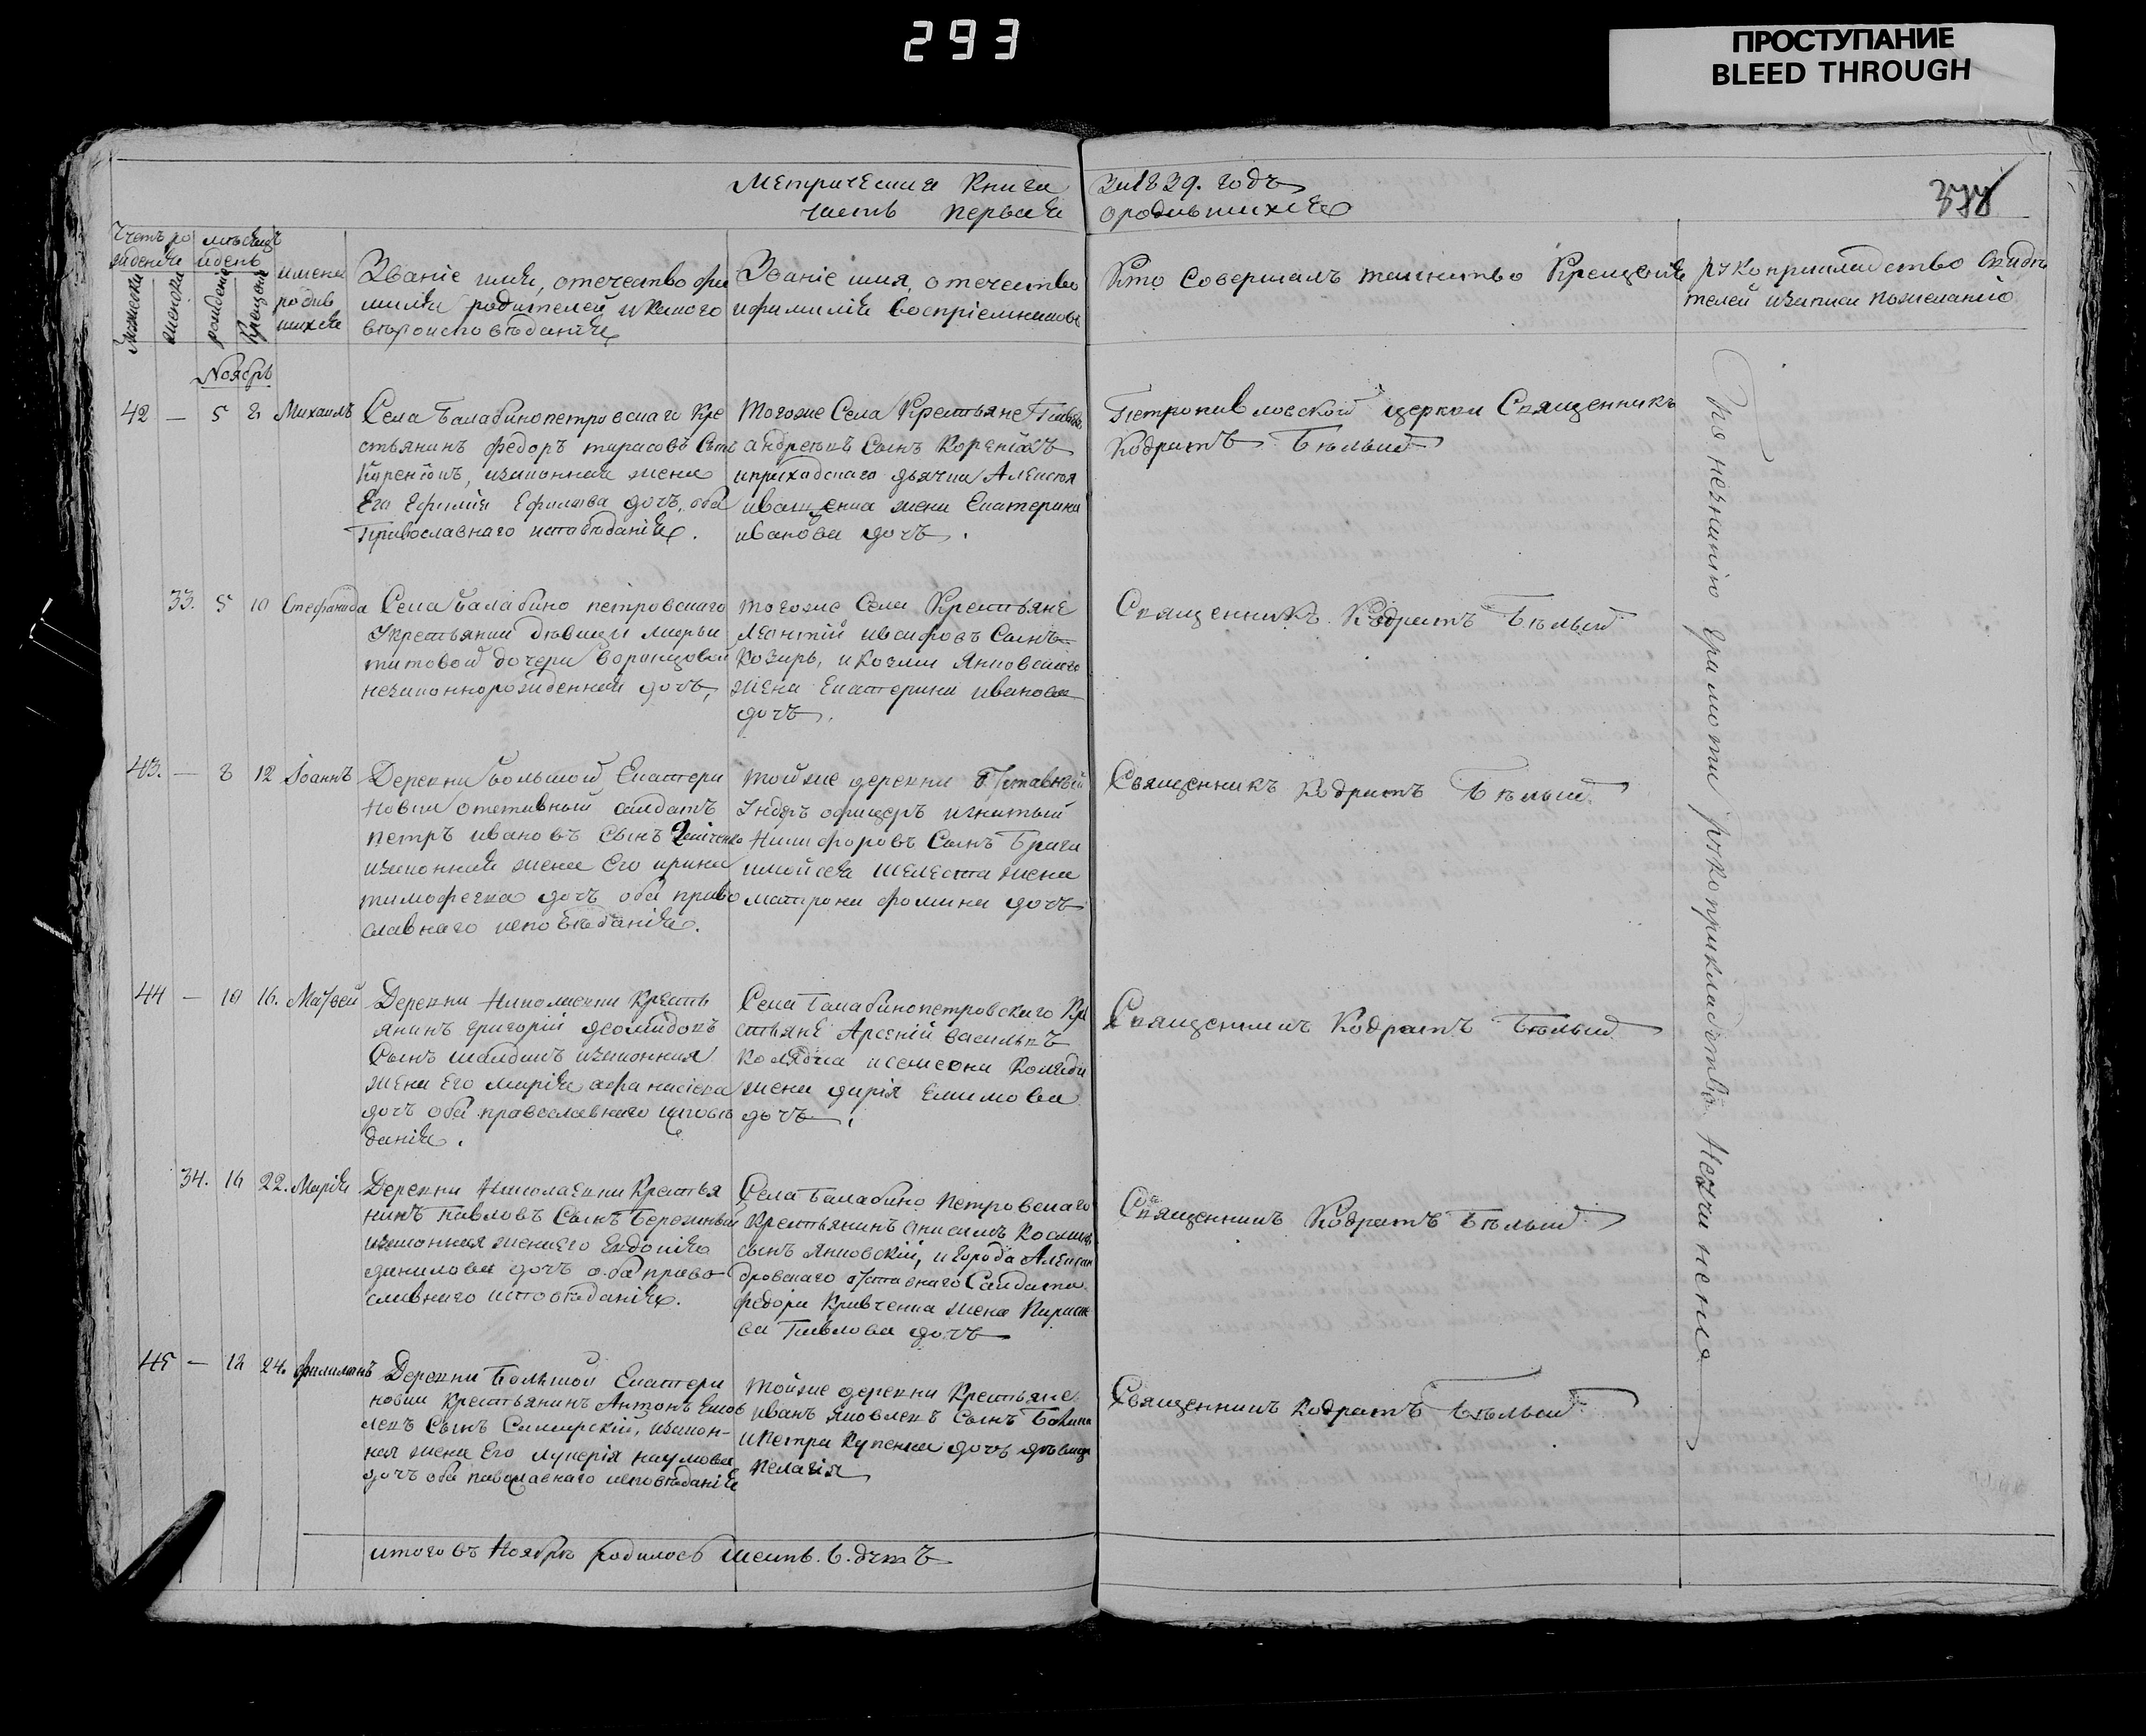 293
ПРОСТУПАНИЕ
BLEED THROUGH
Метрическая Книга за 1839. годъ
часть первая о родившихся
378
Счетъ рожденія
мѣсяцъ и день
имена родившихся
мужеска
женска
рожденія
крещенія
Званіе имя, отечество фа
милія родителей и какого
вѣроисповѣданія
Званіе имя, отечество
и фамилія воспріемниковъ
Кто совершалъ таинство Крещенія
рукоприкладство свидѣ
телей записи по желанію
Ноябрь
42 — 5 8 Михаилъ
Села Балабинопетровскаго Кре
стьянинъ федоръ тарасовъ Сынъ
законная жена
Его Ефимія Ефимова дочъ, оба
Православнаго исповѣданія.
Тогоже Села Крестьяне
андреевъ Сынъ
и приходскаго дьячка Алексѣя
иващенка жена Екатерина
иванова дочъ.
Петропавловской церкви Священникъ
Кодратъ Бѣлый
33. 5 10 Стефанида
Села Балабино петровскаго
У крестьянки дѣвицы Марьи
титовой дочери Воронцовой
незаконнорожденная дочъ,
тогоже Села Крестьяне
Леонтій Сынъ
Козырь, и Козмы Яновскаго
жена Екатерина иванова
дочъ,
Священникъ Кодратъ Бѣлый
43. — 8 12 Іоаннъ
Деревни Большой Екатери
новки отставный салдатъ
петръ ивановъ Сынъ
законная жена Его ирина
тимофеева дочъ оба право
славнаго исповѣданія.
тойже деревни отставный
Ундеръ офицеръ игнатый
Никифоровъ Сынъ Брага
и мойсея Шелеста жена
матрона фомина дочъ
Священникъ Кодратъ Бѣлый
44 — 10 16. Матвей
Деревни Николаевки Кресть
янинъ григорій
Сынъ законная
жена Его Марія афанасіева
дочъ оба православнаго исповѣ
данія.
Села Балабинопетровскаго Кре
стьяне Арсеній васильевъ
Коляда и семена Коляды
жена дарія Екимова
дочъ.
Священникъ Кодратъ Бѣлый
34. 16 22. Марія
Деревни Николаевки Крестья
нинъ павловъ Сынъ Бережный
законная жена его Евдокія
данилова дочъ оба право
славнаго исповѣданія.
Села Балабино Петровскаго
Крестьянинъ Онисимъ Космин
сынъ Яновскій, и города Алексан
дровскаго отставнаго Салдата
федора Кривченка жена Параске
ва Павлова дочъ
Священникъ Кодратъ Бѣлый
45 — 18 24. Филимонъ
Деревни Большой Екатери
новки Крестьянинъ Антонъ
Сынъ закон-
ная жена Его лукерія наумова
дочъ оба павославнаго исповѣданія
тойже деревни Крестьяне
иванъ Яковлевъ Сынъ
и петра Куценка дочъ дѣвица
пелагія
Священникъ Кодратъ Бѣлый
По незнанію грамоты рукоприкладство. Неучинено
итого въ Ноябрѣ родилось шесть. 6. дѣтъ